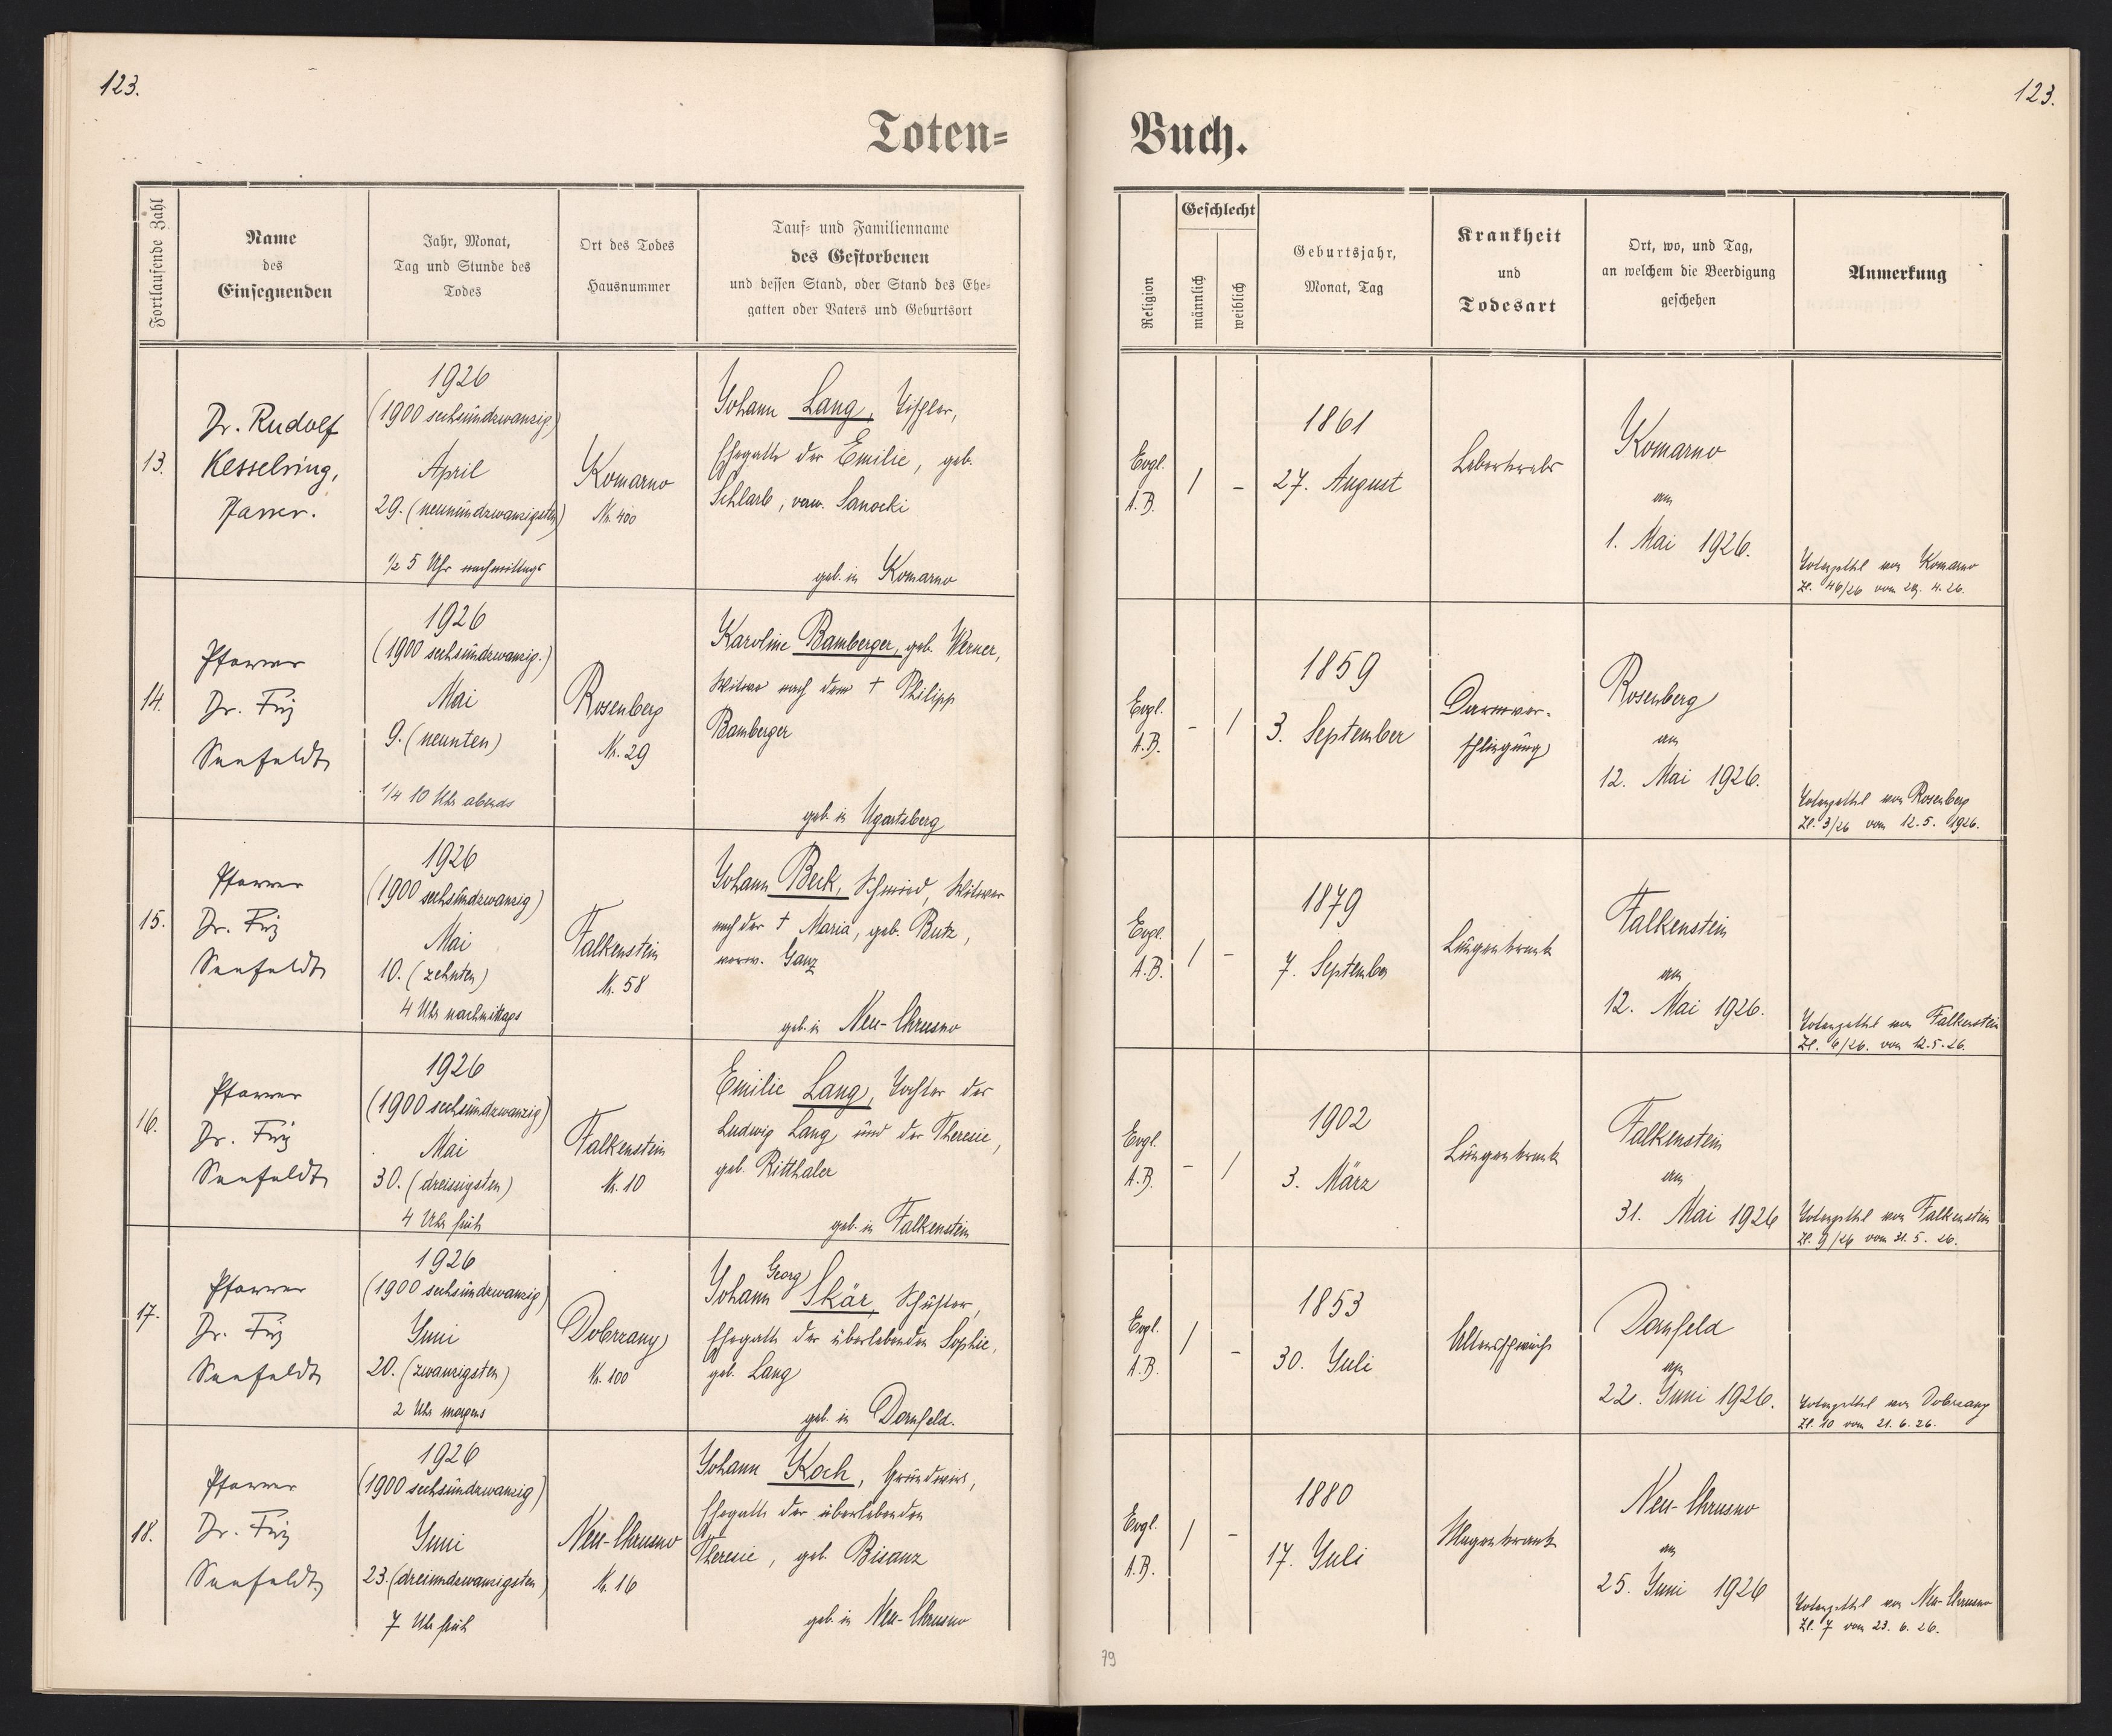 123.
123.
Toten=
Buch.
Fortlaufende Zahl
Name
des
Einsegnenden
Jahr, Monat,
Tag und Stunde des
Todes
Ort des Todes
Hausnummer
Tauf= und Familienname
des Gestorbenen
und dessen Stand, oder Stand des Ehe=
gatten oder Vaters und Geburtsort
Religion
Geschlecht
männlich
weiblich
Geburtsjahr,
Monat, Tag
Krankheit
und
Todesart
Ort, wo, und Tag,
an welchem die Beerdigung
geschehen
Anmerkung
13.
Dr. Rudolf
Kesselring,
Pfarrer.
1926
(1900 sechsundzwanzig)
April
29. (neunundzwanzigsten)
½ 5 Uhr nachmittags
Komarno
Nr. 400
Johann Lang, Tischler,
Ehegatte der Emilie, geb.
Schlarb, verw. Sanocki
geb. in Komarno
Evgl.
A.B.
/
-
1861
27. August
Leberkrebs
Komarno
am
1. Mai 1926.
Totenzettel von Komarno
Zl. 46/26 vom 29. 4. 26.
14.
Pfarrer
Dr. Friz
Seefeldt
1926
(1900 sechsundzwanzig.)
Mai
9. (neunten)
1/4 10 Uhr abends
Rosenberg
Nr. 29
Karoline Bamberger, geb. Werner,
Witwe nach dem † Philipp
Bamberger
geb. in Ugartsberg
Evgl.
A.B.
-
/
1859
3. September
Darmver-
schlingung
Rosenberg
am
12. Mai 1926.
Totenzettel von Rosenberg
Zl. 3/26 vom 12. 5. 1926.
15.
Pfarrer
Dr. Friz
Seefeldt
1926
(1900 sechsundzwanzig)
Mai
10. (zehnten)
4 Uhr nachmittags
Falkenstein
Nr. 58
Johann Beck, Schmied, Witwer
nach der † Maria, geb. Butz,
verw. Ganz
geb. in Neu-Chrusno
Evgl.
A.B.
/
-
1879
7. September
Lungenkrank
Falkenstein
am
12. Mai 1926.
Totenzettel von Falkenstein
Zl. 6/26. vom 12. 5. 26.
16.
Pfarrer
Dr. Friz
Seefeldt
1926
(1900 sechsundzwanzig)
Mai
30. (dreissigsten)
4 Uhr früh
Falkenstein
Nr. 10
Emilie Lang, Tochter des
Ludwig Lang und der Theresie,
geb. Ritthaler
geb. in Falkenstein
Evgl.
A.B.
-
/
1902
3. März
Lungenkrank
Falkenstein
am
31. Mai 1926
Totenzettel von Falkenstein
Zl. 9/26 vom 31. 5. 26.
17.
Pfarrer
Dr. Friz
Seefeldt
1926
(1900 sechsundzwanzig)
Juni
20. (zwanzigsten)
2 Uhr morgens
Dobrzany
Nr. 100
Georg
Johann Skär, Schuster,
Ehegatte der überlebenden Sophie,
geb. Lang
geb. in Dornfeld.
Evgl.
A.B.
/
-
1853
30. Juli
Altersschwäche
Dornfeld
am
22. Juni 1926.
Totenzettel von Dobrzany
Zl. 10 vom 21. 6. 26.
18.
Pfarrer
Dr. Friz
Seefeldt
1926
(1900 sechsundzwanzig)
Juni
23. (dreiundzwanzigsten)
7 Uhr früh
Neu-Chrusno
Nr. 16
Johann Koch, Grundwirt,
Ehegatte der überlebenden
Theresie, geb. Bisanz
geb. in Neu-Chrusno
Evgl.
A.B.
/
-
1880
17. Juli
Magenkrank
Neu-Chrusno
am
25. Juni 1926
Totenzettel von Neu-Chrusno
Zl. 7 vom 23. 6. 26.
79